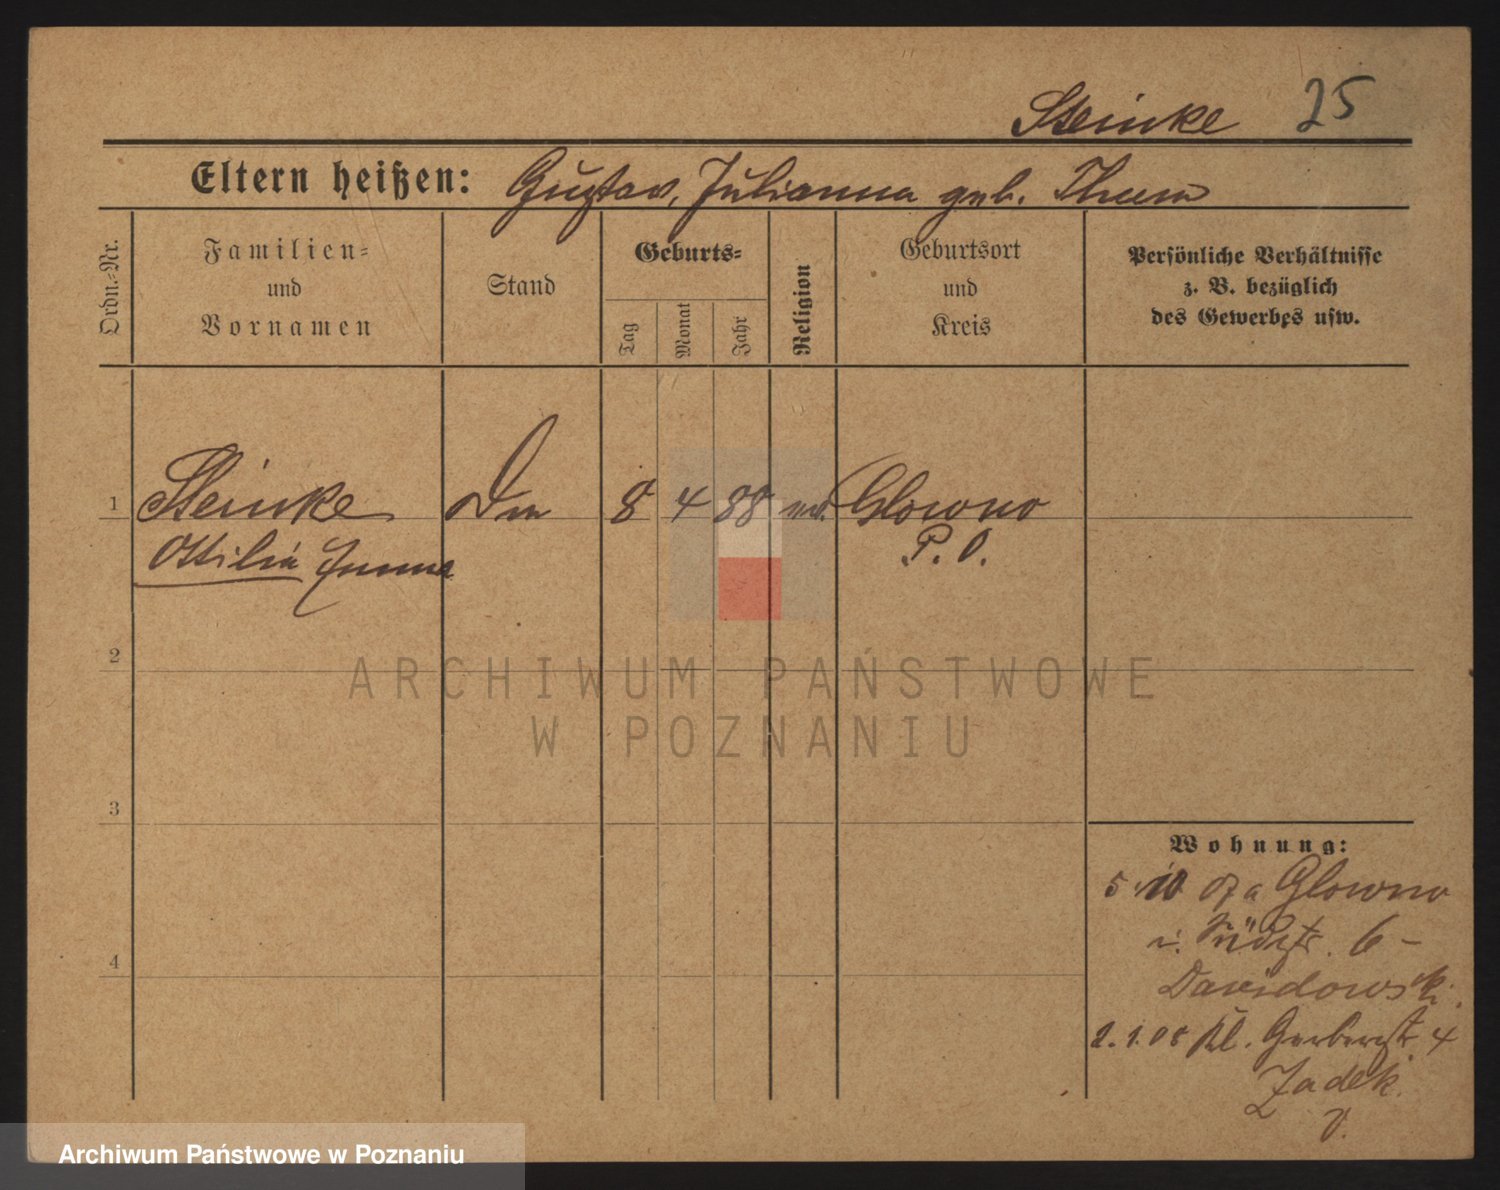 Steinke 25
Eltern heißen: Gustav, Julianna geb. Thum
Ordn.-Nr.
Familien-
und
Vornamen
Stand
Geburts-
Tag
Monat
Jahr
Religion
Geburtsort
und
Kreis
Persönliche Verhältnisse
z. B. bezüglich
des Gewerbes usw.
1 Steinke 8 4 88 Glowno
Ottilie Emma P. O.
2
ARCHIWUM PAŃSTWOWE
W POZNANIU
3
Wohnung:
5 10 Glowno
Südstr. 6 -
Dawidowski.
4
2. 1. 08 Kl. Gerberstr. 4
Zadek.
V.
Archiwum Państwowe w Poznaniu